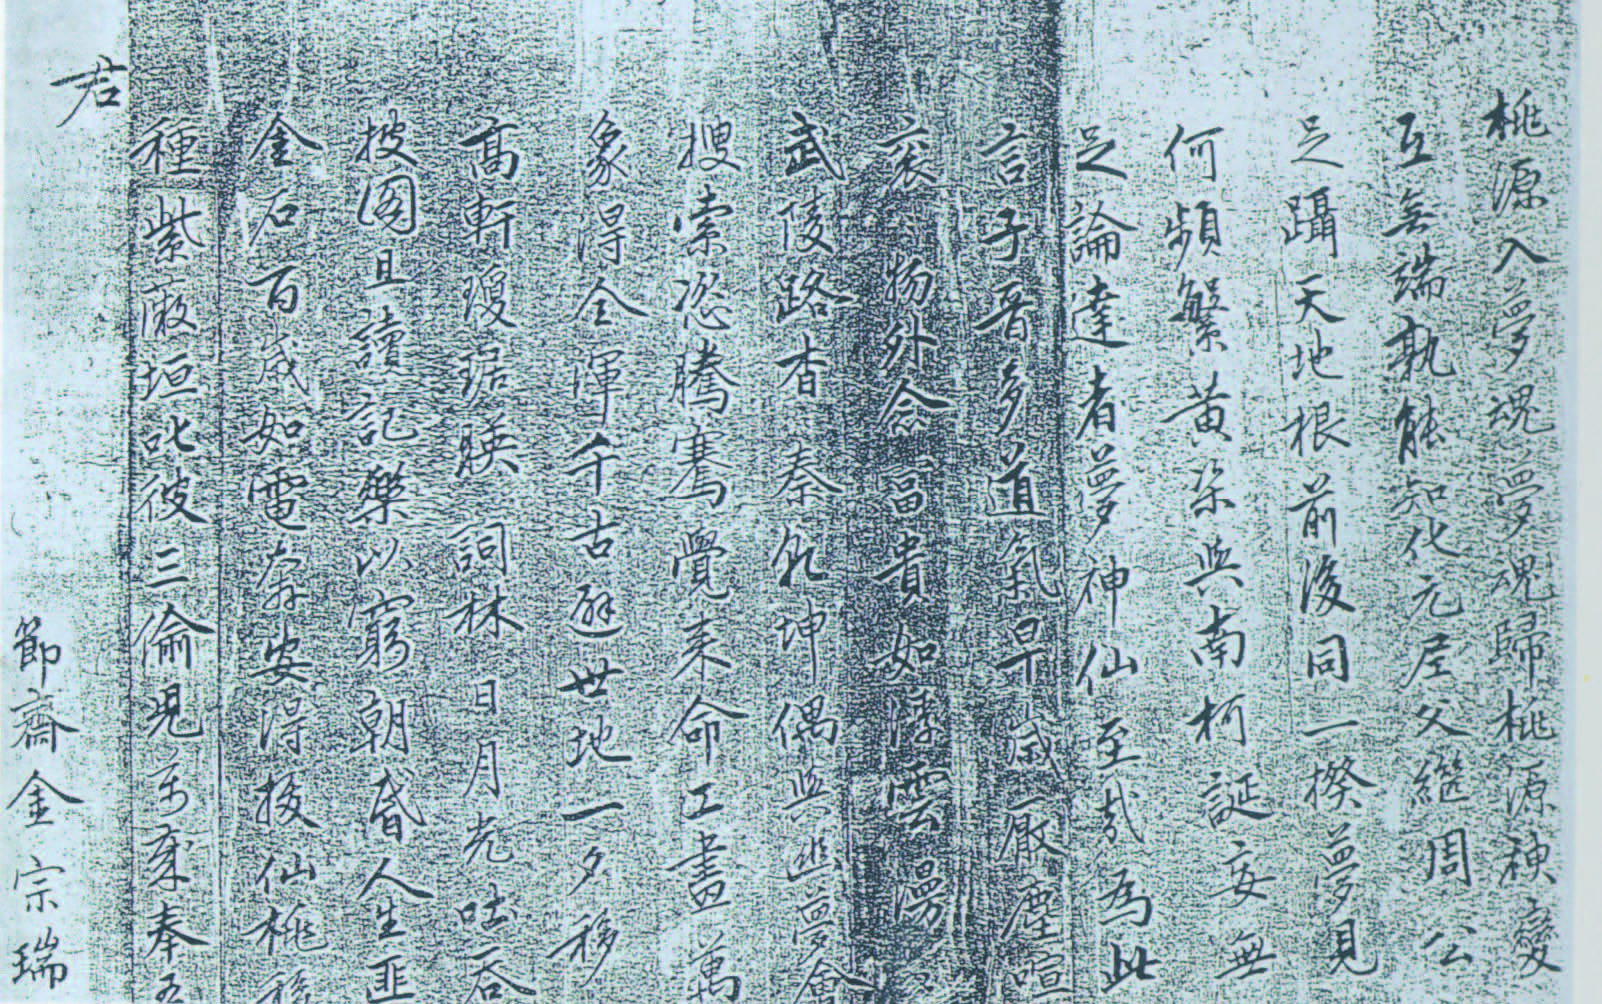 桃源入夢魂夢魂歸桃源神變
互無端孰能知化元尼父継周公
足躡天地根前後同一揆夢見
何頻繁黄粱與南柯誕妄無
足論達者夢神仙至哉為此
言子晉多道氣早歲厭塵喧
襄物外念冨貴如浮雲漫
武陵路杳秦乾坤偶與幽夢會
搜索恣騰騫覺来命工畫萬
象得全渾千古避世地一夕移
髙軒瓊琚暎詞林日月光吐吞
披圖且讀記樂以窮朝昏人生匪
金石百歲如電奔安得投仙桃移
種紫薇垣叱彼三偷児亐来奉吾
君
節齋金宗瑞